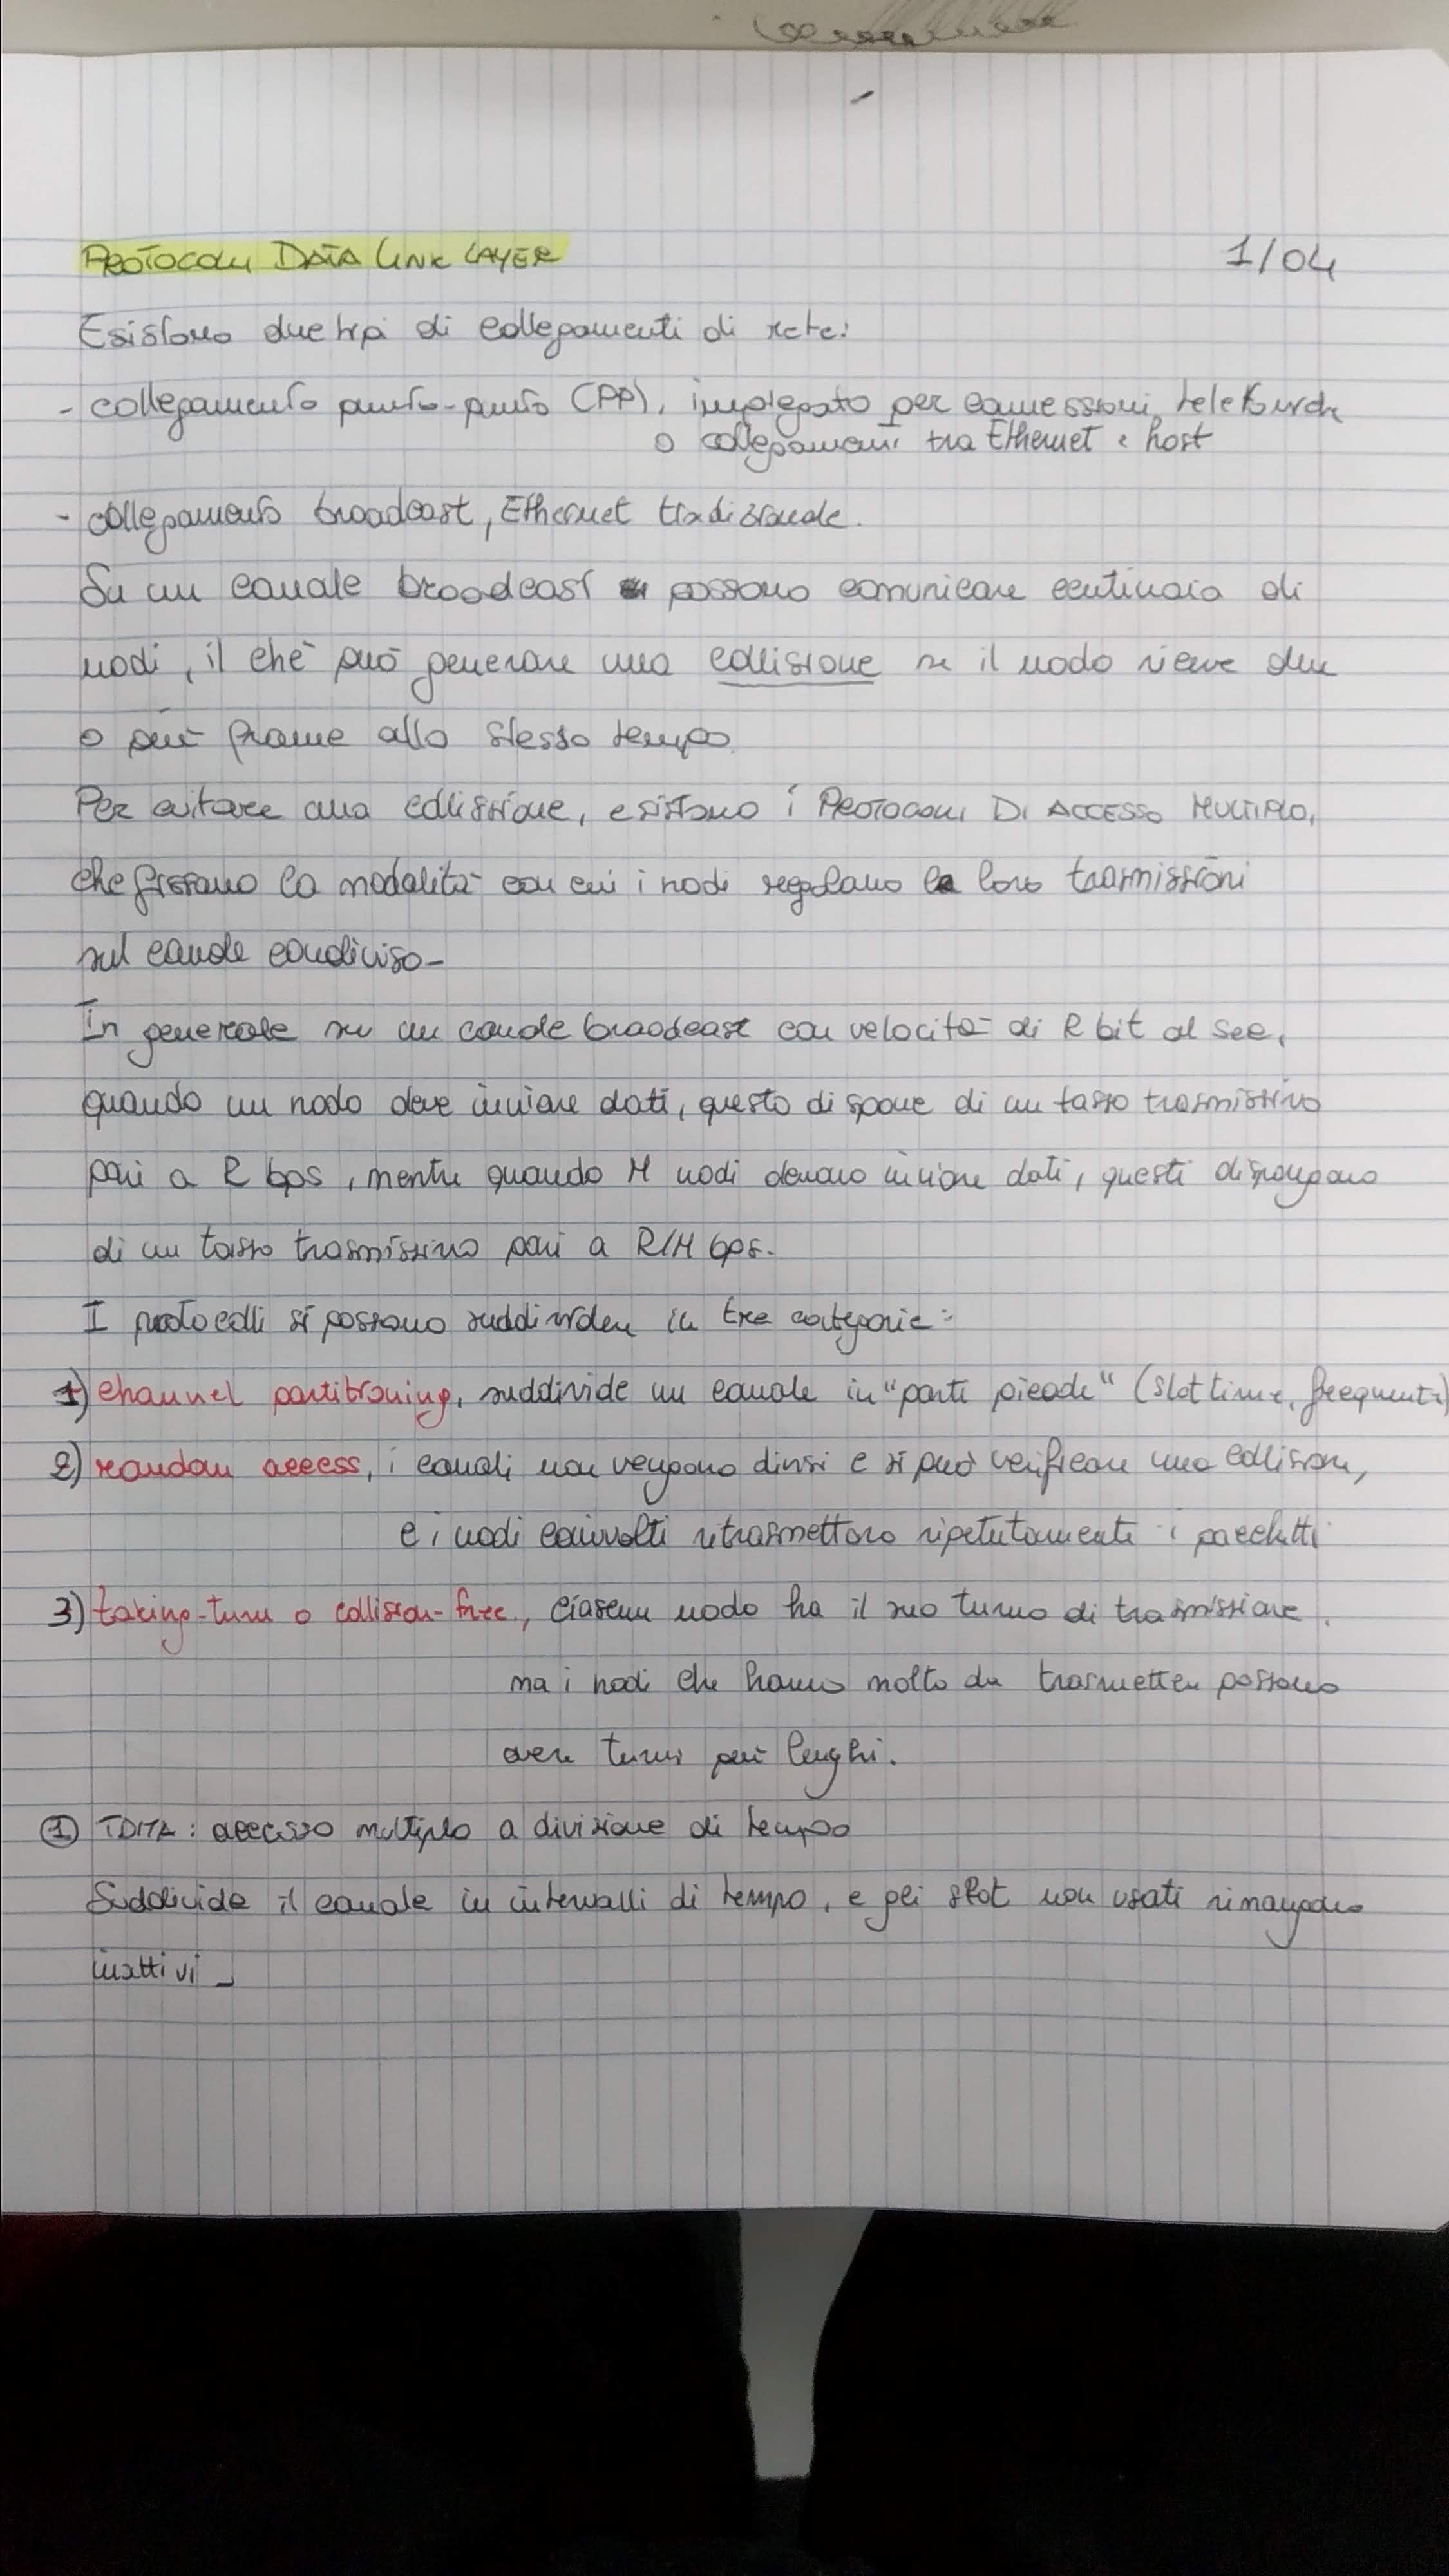 PROTOCOLLI DATA LINK LAYER 1/04
Esistono due tipi di collegamenti di rete:
- collegamento punto-punto (PPP), impiegato per connessioni telefoniche
o collegamenti tra Ethernet e host
- collegamento broadcast, Ethernet tradizionale.
Su un canale broadcast possono comunicare centinaia di
nodi, il chè può generare una collisione se il nodo riceve due
o più frame allo stesso tempo.
Per evitare una collisione, esistono i PROTOCOLLI DI ACCESSO MULTIPLO,
che fissano la modalità con cui i nodi regolano le loro trasmissioni
sul canale condiviso-
In generale su un canale broadcast con velocità di R bit al sec,
quando un nodo deve inviare dati, questo dispone di un tasso trasmissivo
pari a R bps, mentre quando M nodi devono inviare dati, questi dispongono
di un tasso trasmissivo pari a R/M bps.
I protocolli si possono suddividere in tre categorie:
1) channel partitioning, suddivide un canale in "parti piccole" (slot time, frequenti)
2) random access, i canali non vengono divisi e si può verificare una collisione,
e i nodi coinvolti ritrasmettono ripetutamente i pacchetti
3) taking-turn o collision-free, ciascun nodo ha il suo turno di trasmissione,
ma i nodi che hanno molto da trasmettere possono
avere turni più lunghi.
① TDMA: accesso multiplo a divisione di tempo
Suddivide il canale in intervalli di tempo, e gli slot non usati rimangono
inattivi-